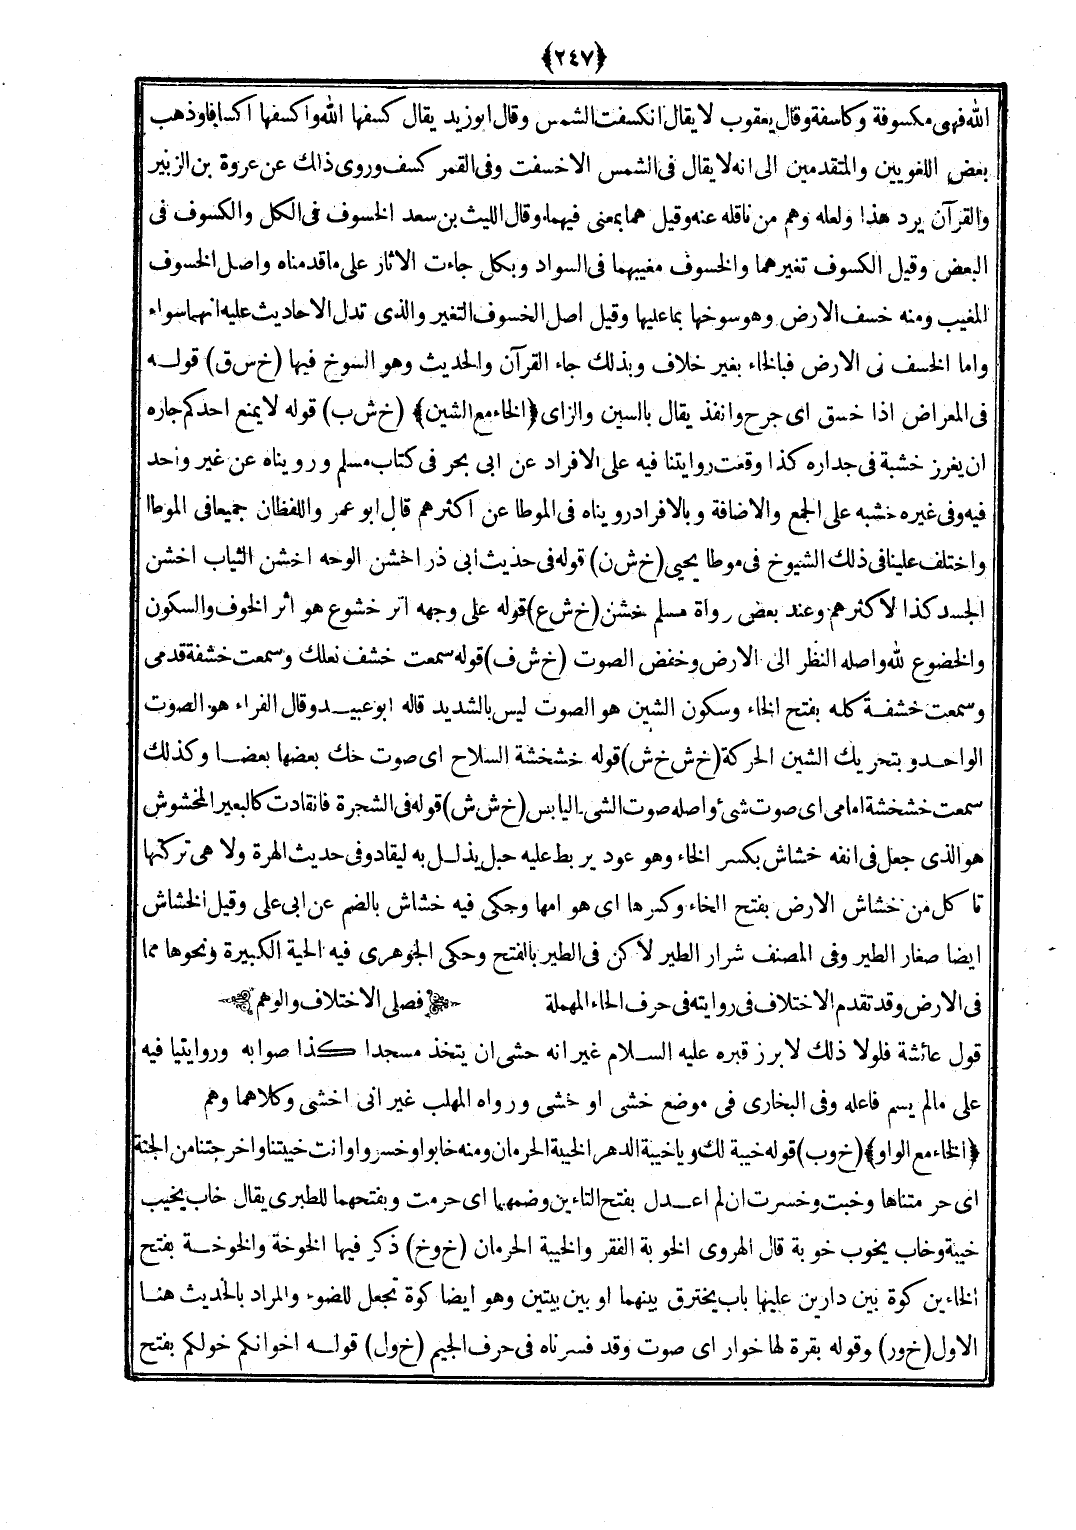 ﴿٢٤٧﴾
الله فهى مكسوفة وكاسفة وقال يعقوب لا يقال انكسفت الشمس وقال ابو زيد يقال كسفها الله واكسفها اكسافا وذهب
بعض اللغويين والمتقدمين الى انه لا يقال فى الشمس الاخسفت وفى القمر كسف وروى ذاك عن عروة بن الزبير
والقرآن يرد هذا ولعله وهم من ناقله عنه وقيل هما بمعنى فيهما وقال الليث بن سعد الخسوف فى الكل والكسوف فى
البعض وقيل الكسوف تغيرهما والخسوف مغيبهما فى السواد وبكل جاءت الاثار على ماقدمناه واصل الخسوف
المغيب ومنه خسف الارض وهو سوخها بما عليها وقيل اصل الخسوف التغير والذى تدل الاحاديث عليه انهما سواء
واما الخسف فى الارض فبالخاء بغير خلاف وبذلك جاء القرآن والحديث وهو السوخ فيها (خ س ق) قولــه
فى المعراض اذا خسق اى جرح وانفذ يقال بالسين والزاى ﴿الخاء مع الشين﴾ (خ ش ب) قوله لا يمنع احدكم جاره
ان يغرز خشبة فى جداره كذا وقعت روايتنا فيه على الافراد عن ابى بحر فى كتاب مسلم ورويناه عن غير واحد
فيه وفى غيره خشبه على الجمع والاضافة وبالافراد رويناه فى الموطا عن اكثرهم قال ابو عمر واللفظان جميعا فى الموطا
واختلف علينا فى ذلك الشيوخ فى موطا يحيى (خ ش ن) قوله فى حديث أبى ذر اخشن الوحه اخشن الثياب اخشن
الجسد كذا لاكثرهم وعند بعض رواة مسلم خشن (خ ش ع) قوله على وجهه اثر خشوع هو اثر الخوف والسكون
والخضوع لله واصله النظر الى الارض وخفض الصوت (خ ش ف) قوله سمعت خشف نعلك وسمعت خشفة قدمى
وسمعت خشفــة كله بفتح الخاء وسكون الشين هو الصوت ليس بالشديد قاله ابو عبيــد وقال الفراء هو الصوت
الواحد وبتحريك الشين الحركة (خ ش خ ش) قوله خشخشة السلاح اى صوت حك بعضها بعضــا وكذلك
سمعت خشخشة امامى اى صوت شئ واصله صوت الشىء اليابس (خ ش ش) قوله فى الشجرة فانقادت كالبعير المخشوش
هو الذى جعل فى انفه خشاش بكسر الخاء وهو عود يربط عليه حبل يذلــل به ليقاد وفى حديث الهرة ولا هى تركتها
تاكل من خشاش الارض بفتح الخاء وكسرها اى هوامها وحكى فيه خشاش بالضم عن ابى على وقيل الخشاش
ايضا صغار الطير وفى المصنف شرار الطير لاكن فى الطير بالفتح وحكى الجوهرى فيه الحية الكبيرة ونحوها مما
فى الارض وقد تقدم الاختلاف فى روايته فى حرف الحاء المهملة فصل فى الاختلاف والوهم
قول عائشة فلولا ذلك لابرز قبره عليه الســلام غير انه حشى ان يتخذ مسجدا كذا صوابه وروايتنا فيه
على مالم يسم فاعله وفى البخارى فى موضع خشى او خشى ورواه المهلب غير انى اخشى وكلاهما وهم
﴿الخاء مع الواو﴾ (خ و ب) قوله خيبة لك ويا خيبة الدهر الخيبة الحرمان ومنه خابوا وخسروا وانت خيبتنا واخرجتنا من الجنة
اى حرمتناها وخبت وخسرت ان لم اعــدل بفتح التاءين وضمهما اى حرمت وبفتحهما للطبرى يقال خاب يخيب
خيبة وخاب يخوب خوبة قال الهروى الخوبة الفقر والخيبة الحرمان (خ و خ) ذكر فيها الخوخة والخوخــة بفتح
الخاءين كوة بين دارين عليها باب يخترق بينهما او بين بيتين وهو ايضا كوة تجعل للضوء والمراد بالحديث هنــا
الاول (خ و ر) وقوله بقرة لها خوار اى صوت وقد فسرناه فى حرف الجيم (خ و ل) قولــه اخوانكم خولكم بفتح